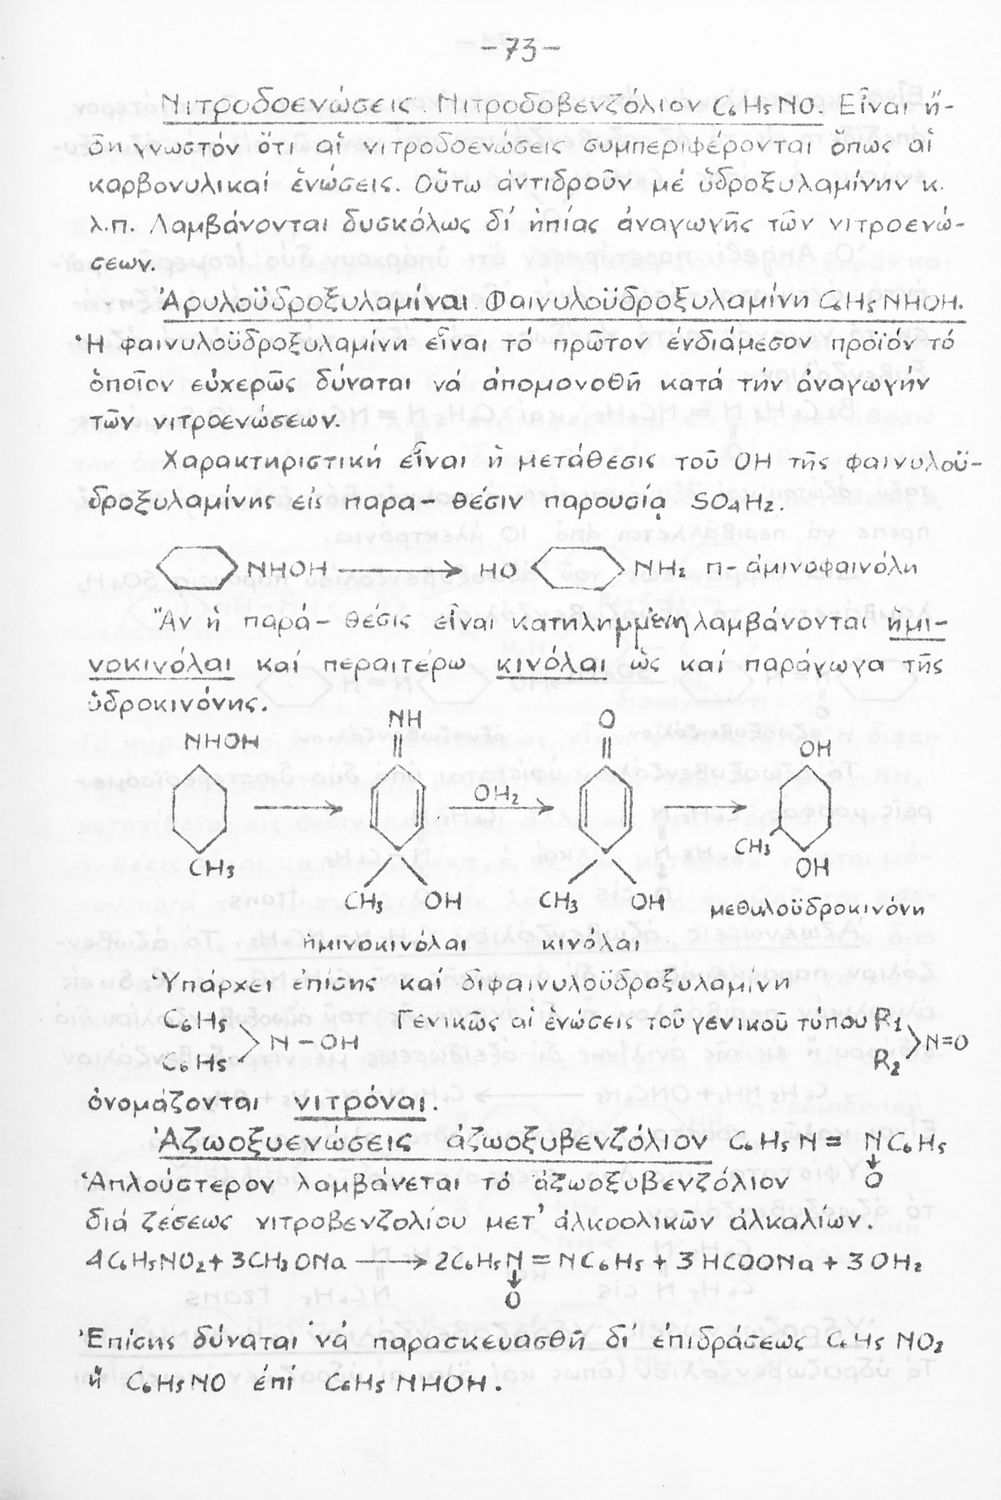 -73-
Νιτροδοενώσεις. Νιτροδοβενζόλιον C₆H₅NO. Εἶναι ἤ-
δη γνωστόν ὅτι αἱ νιτροδοενώσεις συμπεριφέρονται ὅπως αἱ
καρβονυλικαί ἑνώσεις. Οὕτω ἀντιδροῦν μέ ὑδροξυλαμίνην κ.
λ.π. Λαμβάνονται δυσκόλως δι' ἠπίας ἀναγωγῆς τῶν νιτροενώ-
σεων.
Ἀρυλοϋδροξυλαμίναι. Φαινυλοϋδροξυλαμίνη C₆H₅NHOH.
Ἡ φαινυλοϋδροξυλαμίνη εἶναι τό πρῶτον ἐνδιάμεσον προϊόν τό
ὁποῖον εὐχερῶς δύναται νά ἀπομονοθῆ κατά τήν ἀναγωγήν
τῶν νιτροενώσεων.
Χαρακτηριστική εἶναι ἡ μετάθεσις τοῦ OH τῆς φαινυλοϋ-
δροξυλαμίνης είς παρα-θέσιν παρουσίᾳ SO₄H₂.
NHOH → HO NH₂ π-ἀμινοφαινόλη
Ἄν ἡ παρά-θέσις εἶναι κατηλημμένη λαμβάνονται ἡμι-
νοκινόλαι καί περαιτέρω κινόλαι ὡς καί παράγωγα τῆς
ὑδροκινόνης.
NHOH NH O OH
→ OH₂ → →
CH₃ CH₃ OH CH₃ OH CH₃ OH
μεθυλοϋδροκινόνη
ἡμινοκινόλαι κινόλαι
Ὑπάρχει ἐπίσης καί διφαινυλοϋδροξυλαμίνη
C₆H₅ Γενικῶς αἱ ἑνώσεις τοῦ γενικοῦ τύπου R₁
N-OH N=O
C₆H₅ R₂
ὀνομάζονται νιτρόναι.
Ἀζωοξυενώσεις ἀζωοξυβενζόλιον C₆H₅N= NC₆H₅
↓
Ἁπλούστερον λαμβάνεται τό ἀζωοξυβενζόλιον O
διά ζέσεως νιτροβενζολίου μετ' ἀλκοολικῶν ἀλκαλίων.
4C₆H₅NO₂+3CH₃ONa → 2C₆H₅N=NC₆H₅+3HCOONa+3OH₂
↓
O
Ἐπίσης δύναται νά παρασκευασθῆ δι' ἐπιδράσεως C₆H₅NO₂
ἤ C₆H₅NO ἐπί C₆H₅NHOH.